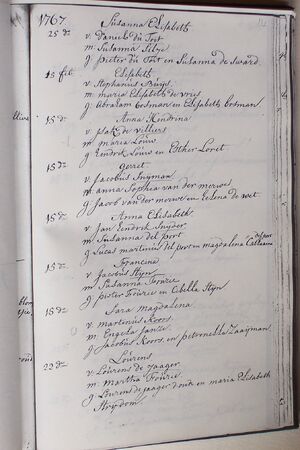 1767 Susanna Elisabeth
25 dr. v. Daniel du Toit
m. Susanna
g. pieter du Toit en Susanna de swardt
15 Elisabeth
v. Stephanus Buijs
m. maria Elisabeth de vries
g. Abraham Bosman en Elisabeth Bosman
15 dr. Anna Hendrina
v. Izak de villiers
m. maria Louw
g. Hendrik Louw en Esther Loret
15 dr. Gerret
v. Jacobus Snijman
m. anna Sophia van der merwe
g. Jacob van der merwe en Helena de wet
15 dr. Anna Elisabeth
v. Jan Hendrik Snyder
m. Susanna del port
g. Lucas martinus del port en magdalena
15 dr. Francina
v. Jacobus Stijn
m. Susanna Fourie
g. pieter Fourie en Stijn
18 dr. Sara magdalena
v. martinus Roos
m. Engela Janze
g. Jacobus Roos en petronella Zaaijman
22 dr. Lourens
v. Lourens de Jaager
m. martha Fourie
g. Lourens de jaager d'oude en maria Elisabeth
Strijdom